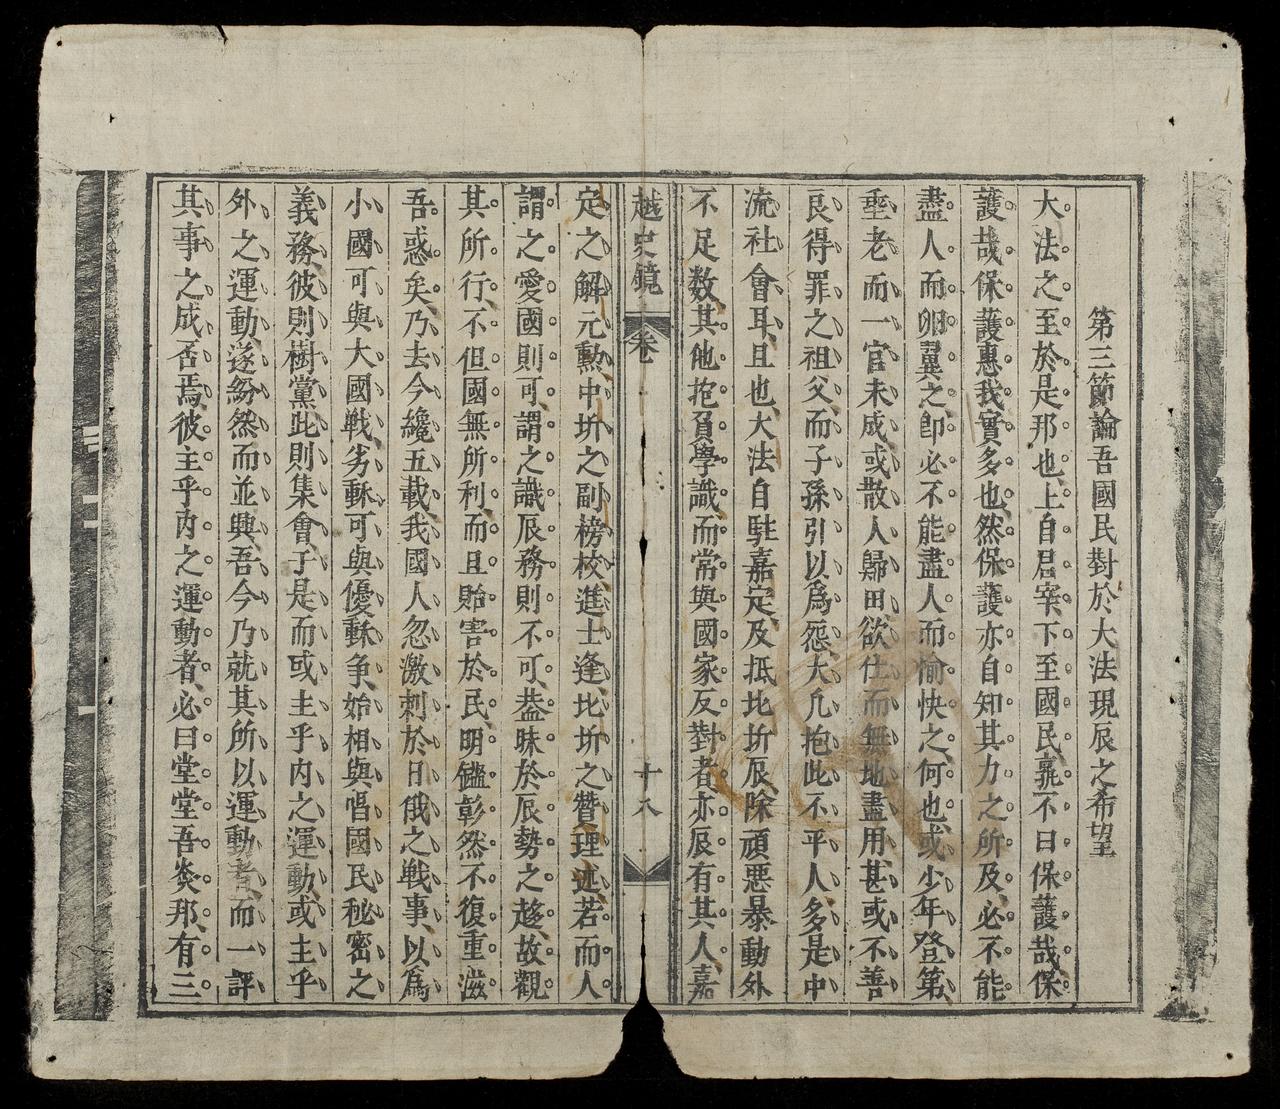 第三節論吾國民對於大法現辰之希望
大法之至於是邦也上自君宰下至國民孰不曰保護哉保
護哉保護惠我實多也然保護亦自知其力之所及必不能
盡人而卵翼之卽必不能盡人而愉快之何也或少年登第
埀老而一官未成或散人歸田欲仕而無地盡用甚或不善
良得罪之祖父而子孫引以爲怨大凡抱此不平人多是中
流社會耳且也大法自駐嘉定及抵北圻辰除頑悪暴動外
不足数其他抱負學識而常與國家反對者亦辰有其人嘉
越史鏡 卷 十八
定之解元勲中圻之副榜校進士逢北圻之贊理述若而人
謂之愛國則可謂之識辰務則不可葢昧於辰勢之趍故觀
其所行不但國無所利而且貽害於民明儘彰然不復重滋
吾惑矣乃去今纔五載我國人忽激刺於日俄之戦事以爲
小國可與大國戦劣種可與優種争始相與唱國民秘密之
義務彼則樹黨此則集會于是而或主乎内之運動或主乎
外之運動遂紛然而並興吾今乃就其所以運動者而一評
其事之成否焉彼主乎内之運動者必曰堂堂吾炎邦有三